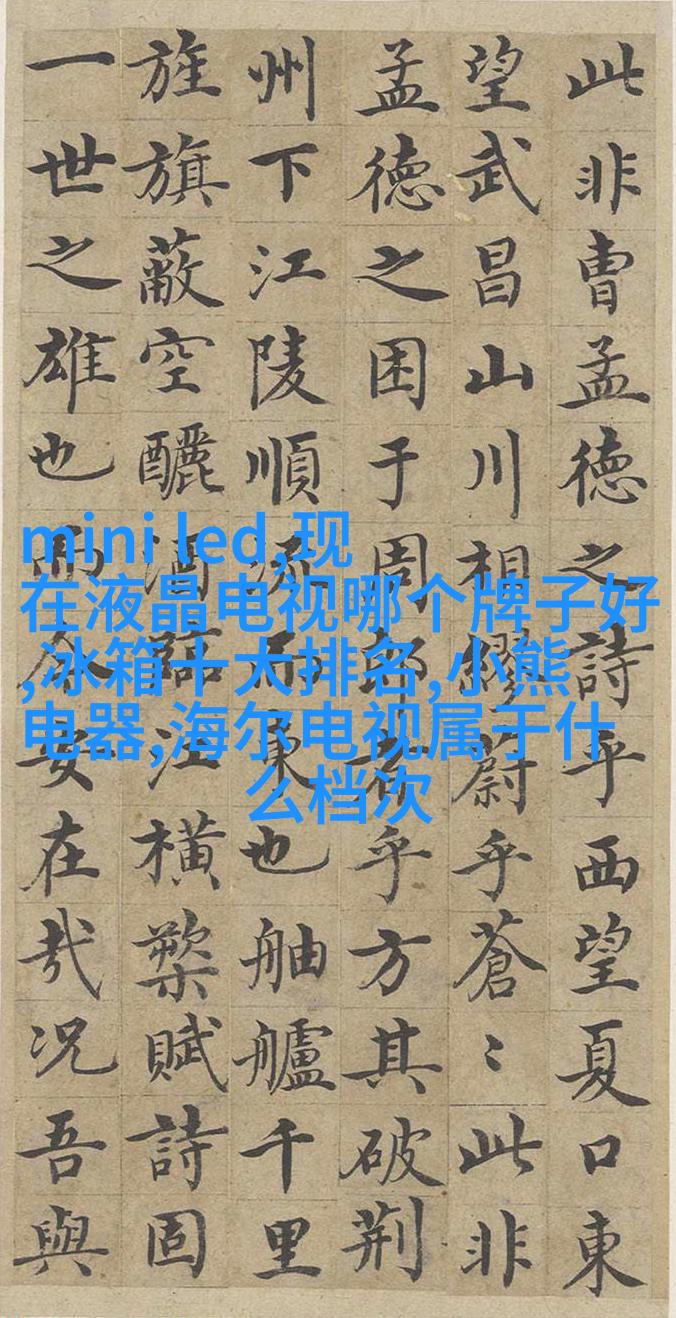 此非曹孟德之詩乎西望夏口東
望武昌山川相繆蔚乎蒼〻此非
孟德之困于周郎者乎方其破荆
州下江陵順流而東也舳艫千里
旌旗蔽空釃酒臨江橫槊賦詩固
一世之雄也而今安在哉况吾與
mini led,现
在液晶电视哪个牌子好
,冰箱十大排名,小熊
电器,海尔电视属于什
么档次